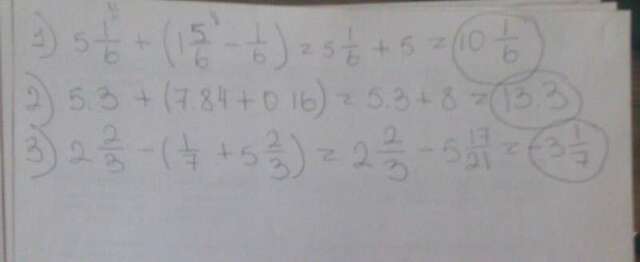 1) 5 1/6 + (1 5/6 - 1/6) = 5 1/6 + 5 = 10 1/6
2) 5.3 + (7.84 + 0.16) = 5.3 + 8 = 13.3
3) 2 2/3 - (1/7 + 5 2/3) = 2 2/3 - 5 17/21 = -3 1/7